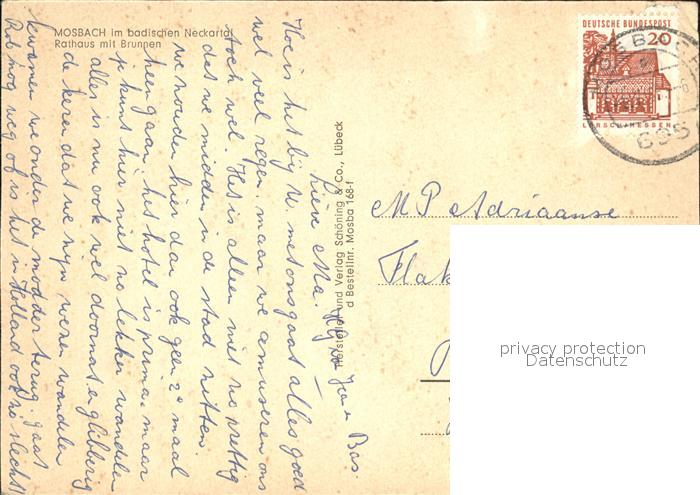 MOSBACH im badischen Neckartal
Rathaus mit Brunnen
Lieve Ma.
Hoe is het bij U. met ons gaat alles goed
wel veel regen. maar we amuseren ons
toch wel. Het is alleen niet zo prettig
dat we midden in de stad zitten
we zouden hier dan ook geen 2e maal
heen gaan. het hotel is prima. maar
je kunt hier niet zo lekker wandelen
alles is nu ook wel doornat en glibberig
de keren dat we zijn wezen wandelen
kwamen we onder de modder terug. gaat
Rob nog weg of is het in Holland ook zo slecht!
Bas.
Hersteller und Verlag Schöning & Co., Lübeck
Bestellnr. Mosba 168-1
DEUTSCHE BUNDESPOST
20
LORSCH/HESSEN
695
M P Adriaanse
privacy protection
Datenschutz